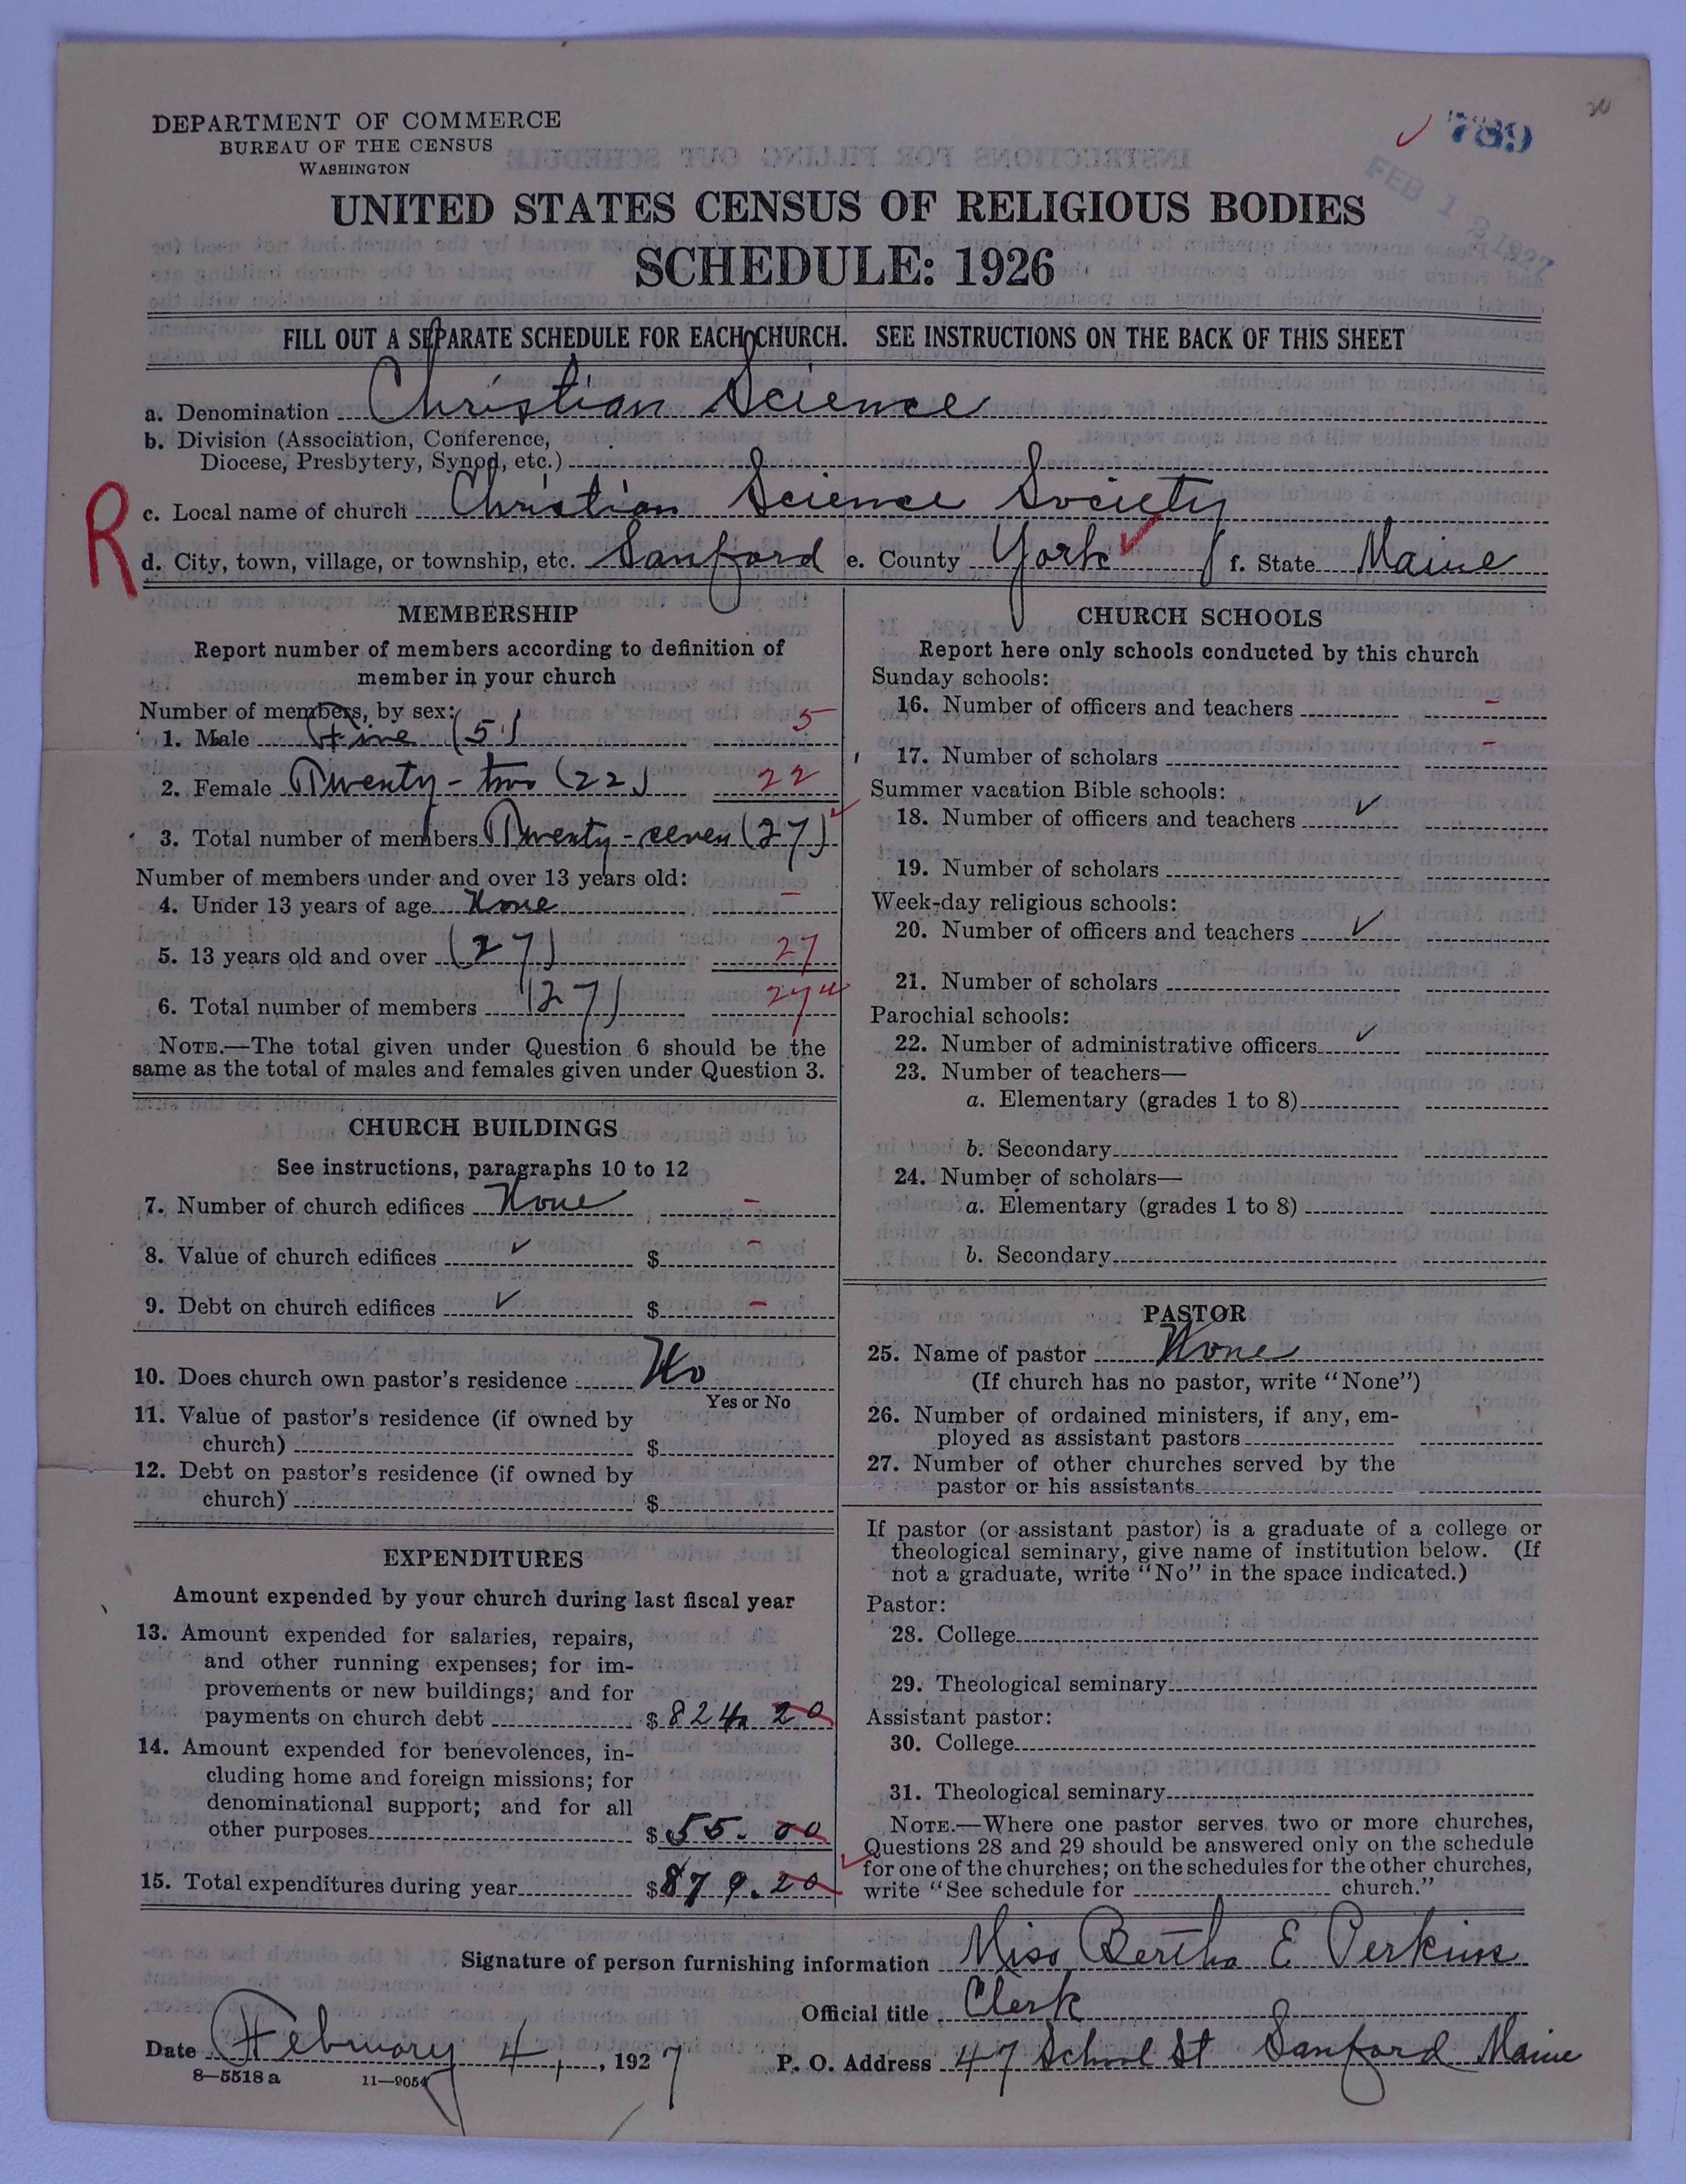 DEPARTMENT OF COMMERCE
BUREAU OF THE CENSUS
WASHINGTON
789
FEB 12 1927
UNITED STATES CENSUS OF RELIGIOUS BODIES
SCHEDULE: 1926
FILL OUT A SEPARATE SCHEDULE FOR EACH CHURCH. SEE INSTRUCTIONS ON THE BACK OF THIS SHEET
a. Denomination Christian Science
b. Division (Association, Conference,
Diocese, Presbytery, Synod, etc.)
R
c. Local name of church Christian Science Society
d. City, town, village, or township, etc. Sanford e. County York f. State Maine
MEMBERSHIP
Report number of members according to definition of
member in your church
Number of members, by sex:
1. Male Five (5) 5
2. Female Twenty-two (22) 22
3. Total number of members Twenty-seven (27)
Number of members under and over 13 years old:
4. Under 13 years of age None -
5. 13 years old and over (27) 27
6. Total number of members (27) 27
NOTE.—The total given under Question 6 should be the
same as the total of males and females given under Question 3.
CHURCH BUILDINGS
See instructions, paragraphs 10 to 12
7. Number of church edifices None -
8. Value of church edifices ✓ $ -
9. Debt on church edifices ✓ $ -
10. Does church own pastor's residence No
Yes or No
11. Value of pastor's residence (if owned by
church) $
12. Debt on pastor's residence (if owned by
church) $
EXPENDITURES
Amount expended by your church during last fiscal year
13. Amount expended for salaries, repairs,
and other running expenses; for im-
provements or new buildings; and for
payments on church debt $ 824. 20
14. Amount expended for benevolences, in-
cluding home and foreign missions; for
denominational support; and for all
other purposes $ 55. 00
15. Total expenditures during year $ 879. 20
CHURCH SCHOOLS
Report here only schools conducted by this church
Sunday schools:
16. Number of officers and teachers -
17. Number of scholars -
Summer vacation Bible schools:
18. Number of officers and teachers ✓
19. Number of scholars
Week-day religious schools:
20. Number of officers and teachers ✓
21. Number of scholars
Parochial schools:
22. Number of administrative officers ✓
23. Number of teachers—
a. Elementary (grades 1 to 8)
b. Secondary
24. Number of scholars—
a. Elementary (grades 1 to 8)
b. Secondary
PASTOR
25. Name of pastor None
(If church has no pastor, write "None")
26. Number of ordained ministers, if any, em-
ployed as assistant pastors
27. Number of other churches served by the
pastor or his assistants
If pastor (or assistant pastor) is a graduate of a college or
theological seminary, give name of institution below. (If
not a graduate, write "No" in the space indicated.)
Pastor:
28. College
29. Theological seminary
Assistant pastor:
30. College
31. Theological seminary
NOTE.—Where one pastor serves two or more churches,
Questions 28 and 29 should be answered only on the schedule
for one of the churches; on the schedules for the other churches,
write "See schedule for church."
Signature of person furnishing information Miss Bertha E Perkins
Official title Clerk
Date February 4, , 1927 P. O. Address 47 School St Sanford Maine
8—5518 a 11—9054